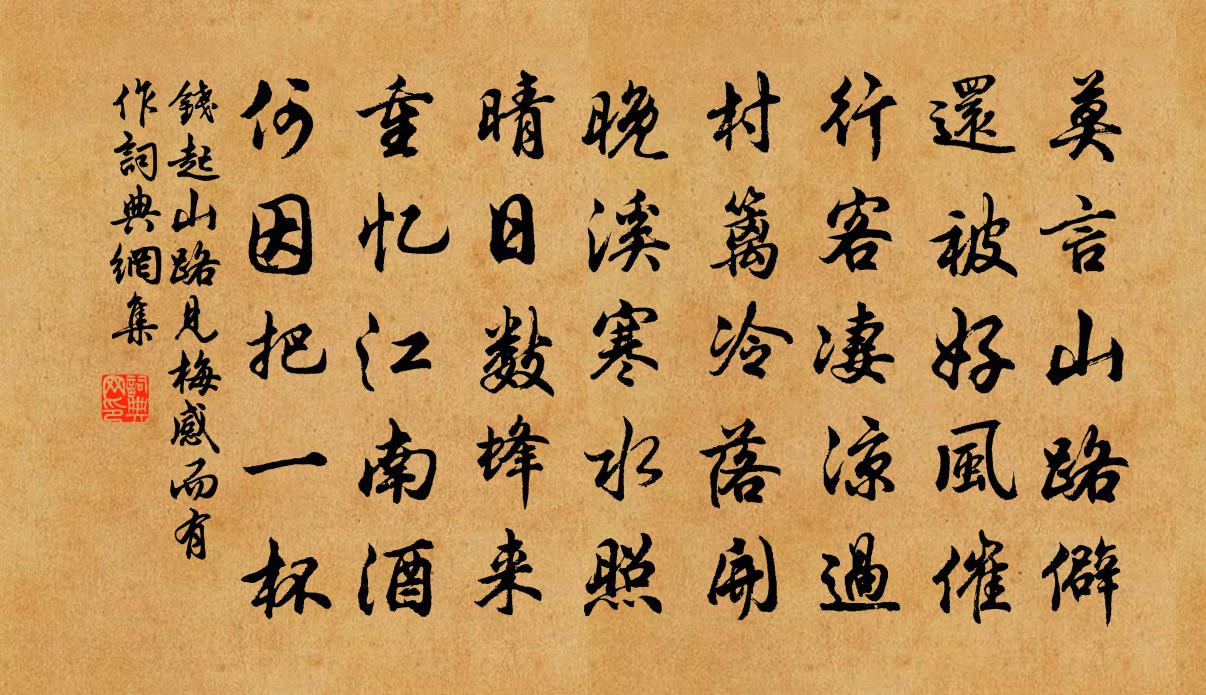 莫言山路僻
還被好風催
行客淒涼過
村籬冷落開
晚溪寒水照
晴日數蜂来
重忆江南酒
何因把一杯
錢起山路見梅感而有
作詞典網集
詞典
网印